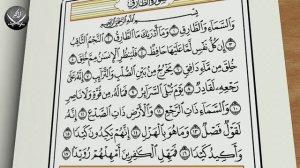 سُورَةُ الطَّارِقِ
وَالسَّمَآءِ وَالطَّارِقِ ١ وَمَآ أَدْرَىٰكَ مَا الطَّارِقُ ٢ النَّجْمُ الثَّاقِبُ
٣ إِن كُلُّ نَفْسٍ لَّمَّا عَلَيْهَا حَافِظٌ ٤ فَلْيَنظُرِ الْإِنسَٰنُ مِمَّ خُلِقَ
٥ خُلِقَ مِن مَّآءٍ دَافِقٍ ٦ يَخْرُجُ مِنۢ بَيْنِ الصُّلْبِ وَالتَّرَآئِبِ ٧ إِنَّهُۥ عَلَىٰ
رَجْعِهِۦ لَقَادِرٌ ٨ يَوْمَ تُبْلَى السَّرَآئِرُ ٩ فَمَا لَهُۥ مِن قُوَّةٍ وَلَا نَاصِرٍ
١٠ وَالسَّمَآءِ ذَاتِ الرَّجْعِ ١١ وَالْأَرْضِ ذَاتِ الصَّدْعِ ١٢ إِنَّهُۥ
لَقَوْلٌ فَصْلٌ ١٣ وَمَا هُوَ بِالْهَزْلِ ١٤ إِنَّهُمْ يَكِيدُونَ كَيْدًا
١٥ وَأَكِيدُ كَيْدًا ١٦ فَمَهِّلِ الْكَٰفِرِينَ أَمْهِلْهُمْ رُوَيْدًۢا ١٧